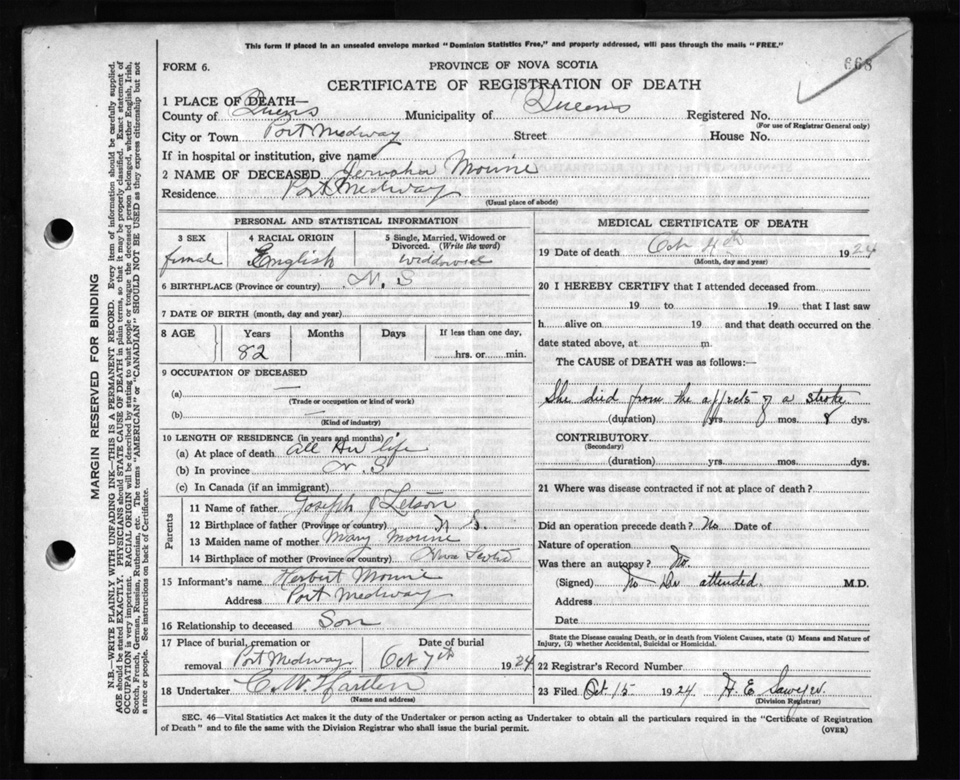 This form if placed in an unsealed envelope marked "Dominion Statistics Free," and properly addressed, will pass through the mails "FREE."
FORM 6.
PROVINCE OF NOVA SCOTIA
668
CERTIFICATE OF REGISTRATION OF DEATH
1 PLACE OF DEATH—
County of Queens Municipality of Queens Registered No.
(For use of Registrar General only)
City or Town Port Medway Street House No.
If in hospital or institution, give name
2 NAME OF DECEASED
Residence Port Medway
(Usual place of abode)
PERSONAL AND STATISTICAL INFORMATION
3 SEX 4 RACIAL ORIGIN 5 Single, Married, Widowed or Divorced. (Write the word)
female English widdowed
6 BIRTHPLACE (Province or country) N. S
7 DATE OF BIRTH (month, day and year)
8 AGE Years Months Days If less than one day,
82 hrs. or min.
9 OCCUPATION OF DECEASED
(a) —
(Trade or occupation or kind of work)
(b) —
(Kind of industry)
10 LENGTH OF RESIDENCE (in years and months)
(a) At place of death all Her life
(b) In province N. S
(c) In Canada (if an immigrant)
Parents
11 Name of father Joseph Letson
12 Birthplace of father (Province or country) N S.
13 Maiden name of mother Mary
14 Birthplace of mother (Province or country) Nova Scotia
15 Informant's name Herbert
Address Port Medway
16 Relationship to deceased Son
17 Place of burial, cremation or removal Port Medway Date of burial Oct 7th 1924
18 Undertaker C. W.
(Name and address)
MEDICAL CERTIFICATE OF DEATH
19 Date of death Oct 4th 1924
(Month, day and year)
20 I HEREBY CERTIFY that I attended deceased from
19 to 19 that I last saw
h alive on 19 and that death occurred on the
date stated above, at m.
The CAUSE of DEATH was as follows:—
She died from the affects of a stroke
(duration) yrs. mos. 8 dys.
CONTRIBUTORY
(Secondary)
(duration) yrs. mos. dys.
21 Where was disease contracted if not at place of death?
Did an operation precede death? No Date of
Nature of operation
Was there an autopsy? No.
(Signed) No Dr attended. M.D.
Address
Date
State the Disease causing Death, or in death from Violent Causes, state (1) Means and Nature of
Injury, (2) whether Accidental, Suicidal or Homicidal.
22 Registrar's Record Number
23 Filed Oct 15 1924 H. E. Sawyer.
(Division Registrar)
SEC. 46—Vital Statistics Act makes it the duty of the Undertaker or person acting as Undertaker to obtain all the particulars required in the "Certificate of Registration
of Death" and to file the same with the Division Registrar who shall issue the burial permit. (OVER)
MARGIN RESERVED FOR BINDING
N.B.—WRITE PLAINLY WITH UNFADING INK—THIS IS A PERMANENT RECORD. Every item of information should be carefully supplied.
AGE should be stated EXACTLY. PHYSICIANS should STATE CAUSE OF DEATH in plain terms, so that it may be properly classified. Exact statement of
OCCUPATION is very important. RACIAL ORIGIN will be described by stating to what people or tongue the deceased person belonged, whether English, Irish,
Scotch, French, German, Russian, Ruthenian, etc. The terms "AMERICAN" or "CANADIAN" SHOULD NOT BE USED as they express citizenship but not
a race or people. See instructions on back of Certificate.